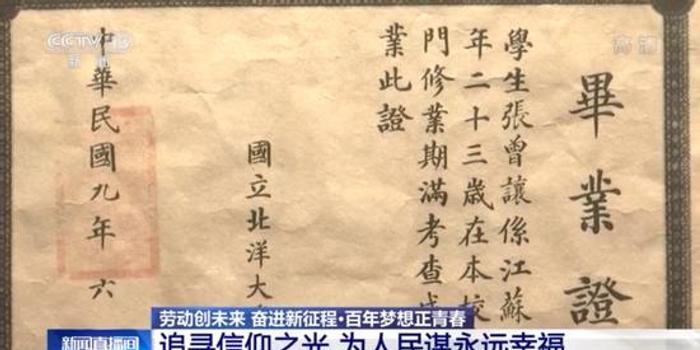 畢業證
學生張曾讓係江蘇
年二十三歲在本校
門修業期滿考查成
業此證
國立北洋大
中華民國九年六
CCTV 13
新闻
高清
劳动创未来 奋进新征程·百年梦想正青春
新闻直播间
追寻信仰之光 为人民谋永远幸福